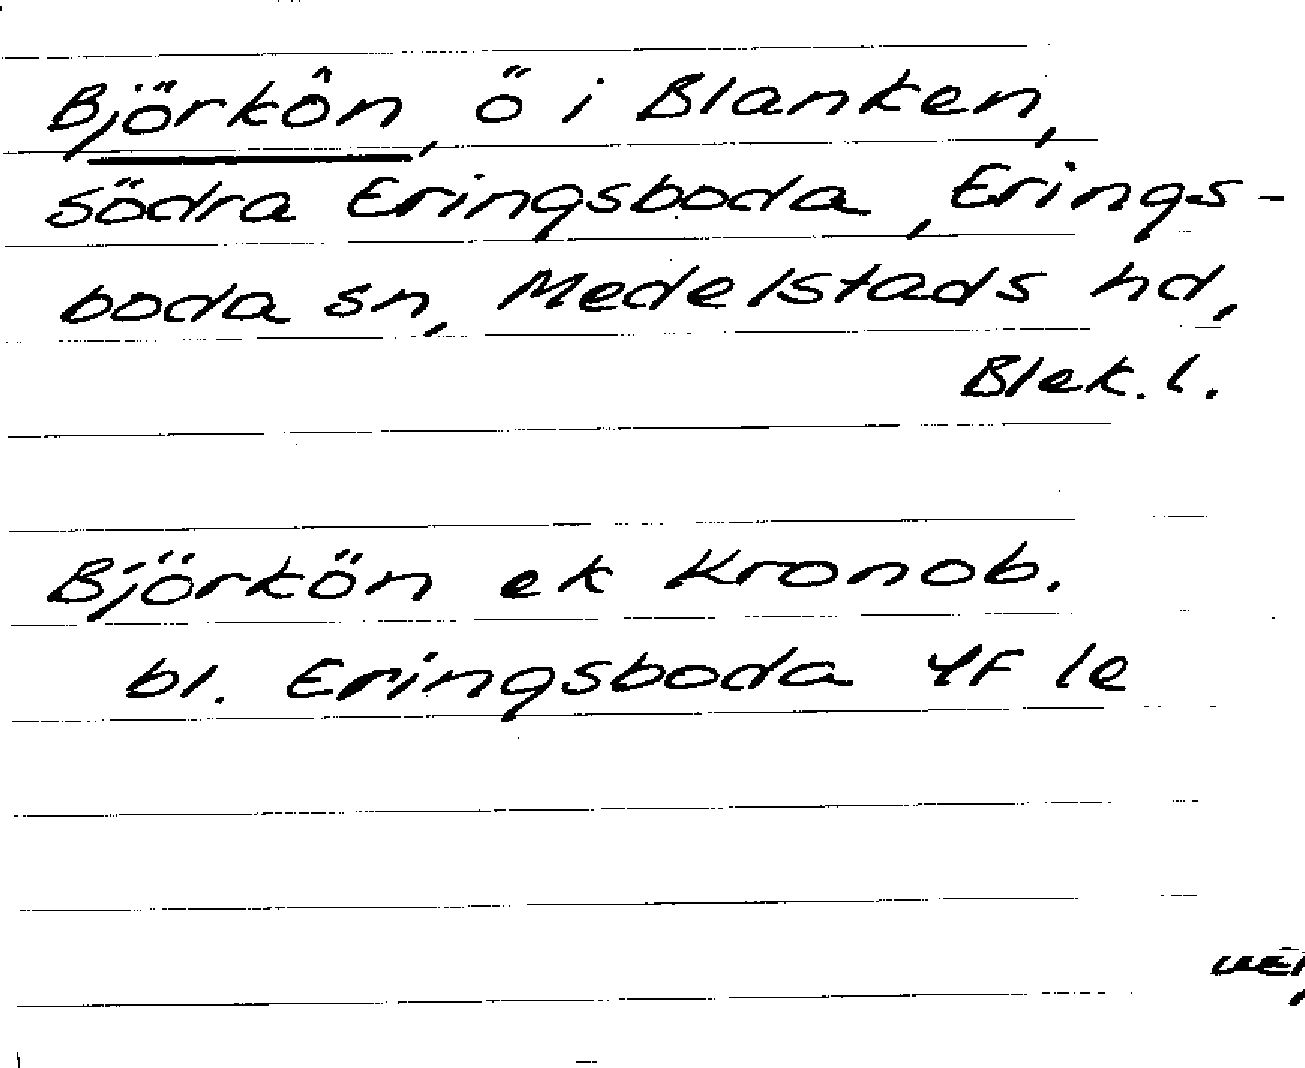 Björkôn, ö i Blanken,
södra Eringsboda, Erings-
boda sn, Medelstads hd,
Blek. l.
Björkön ek Kronob.
bl. Eringsboda 4F le